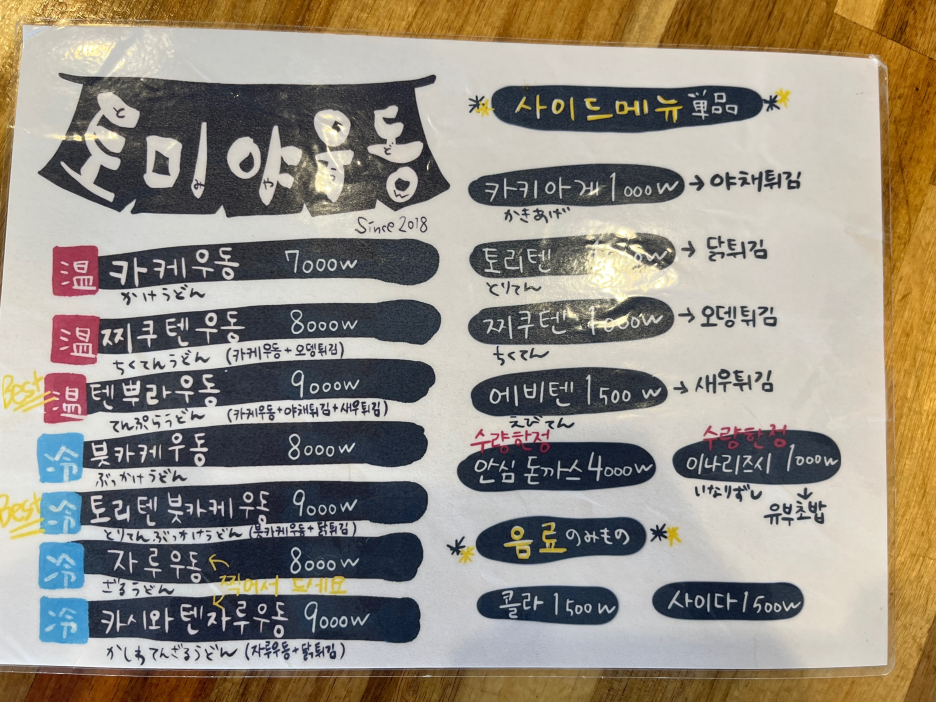 토미야우동
と み や う ど ん
Since 2018
温 카케우동 7000w
かけうどん
温 찌쿠텐우동 8000w
ちくてんうどん (카케우동+오뎅튀김)
Best 温 텐뿌라우동 9000w
てんぷらうどん (카케우동+야채튀김+새우튀김)
冷 붓카케우동 8000w
ぶっかけうどん
Best 冷 토리텐 붓카케우동 9000w
とりてんぶっかけうどん (붓카케우동+닭튀김)
冷 자루우동 8000w
ざるうどん 찍어서 드세요
冷 카시와텐자루우동 9000w
かしわてんざるうどん (자루우동+닭튀김)
사이드메뉴 単品
카키아게 1000w → 야채튀김
かきあげ
토리텐 → 닭튀김
とりてん
찌쿠텐 1000w → 오뎅튀김
ちくてん
에비텐 1500w → 새우튀김
えびてん
수량한정
안심 돈까스 4000w
수량한정
이나리즈시 1000w
いなりずし
유부초밥
음료 のみもの
콜라 1500w
사이다 1500w